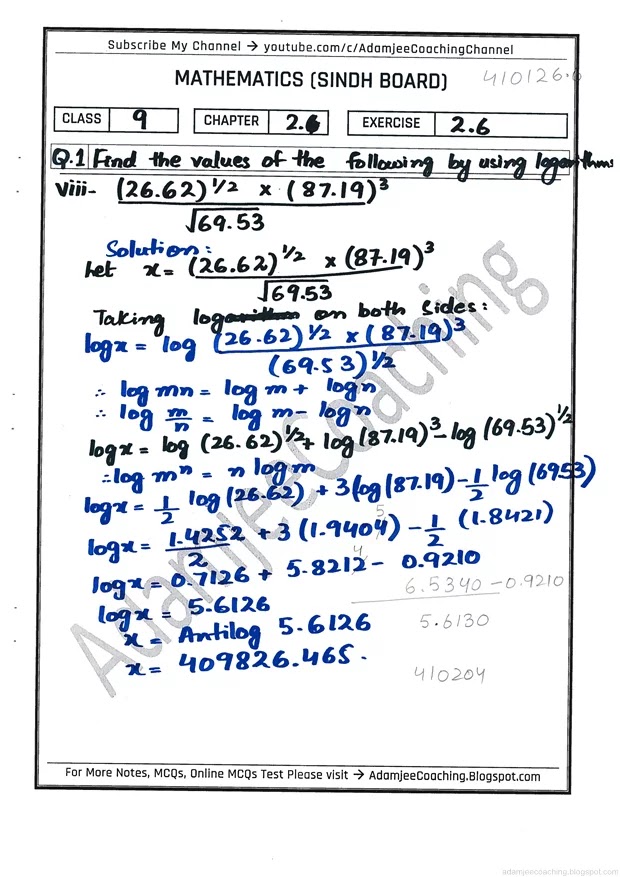 Subscribe My Channel → youtube.com/c/AdamjeeCoachingChannel
MATHEMATICS (SINDH BOARD)
410126.6
CLASS 9 CHAPTER 2.6 EXERCISE 2.6
Q.1 Find the values of the following by using logarithms
viii- (26.62)^1/2 x (87.19)^3
√69.53
Solution:
Let x = (26.62)^1/2 x (87.19)^3
√69.53
Taking log on both sides:
log x = log (26.62)^1/2 x (87.19)^3
(69.53)^1/2
∴ log mn = log m + log n
∴ log m/n = log m - log n
log x = log (26.62)^1/2 + log (87.19)^3 - log (69.53)^1/2
∴ log m^n = n log m
log x = 1/2 log (26.62) + 3 log (87.19) - 1/2 log (69.53)
5
log x = 1.4252/2 + 3 (1.9404) - 1/2 (1.8421)
4
log x = 0.7126 + 5.8212 - 0.9210
6.5340 - 0.9210
log x = 5.6126
5.6130
x = Antilog 5.6126
x = 409826.465.
410204
AdamjeeCoaching
For More Notes, MCQs, Online MCQs Test Please visit → AdamjeeCoaching.Blogspot.com
adamjeecoaching.blogspot.com